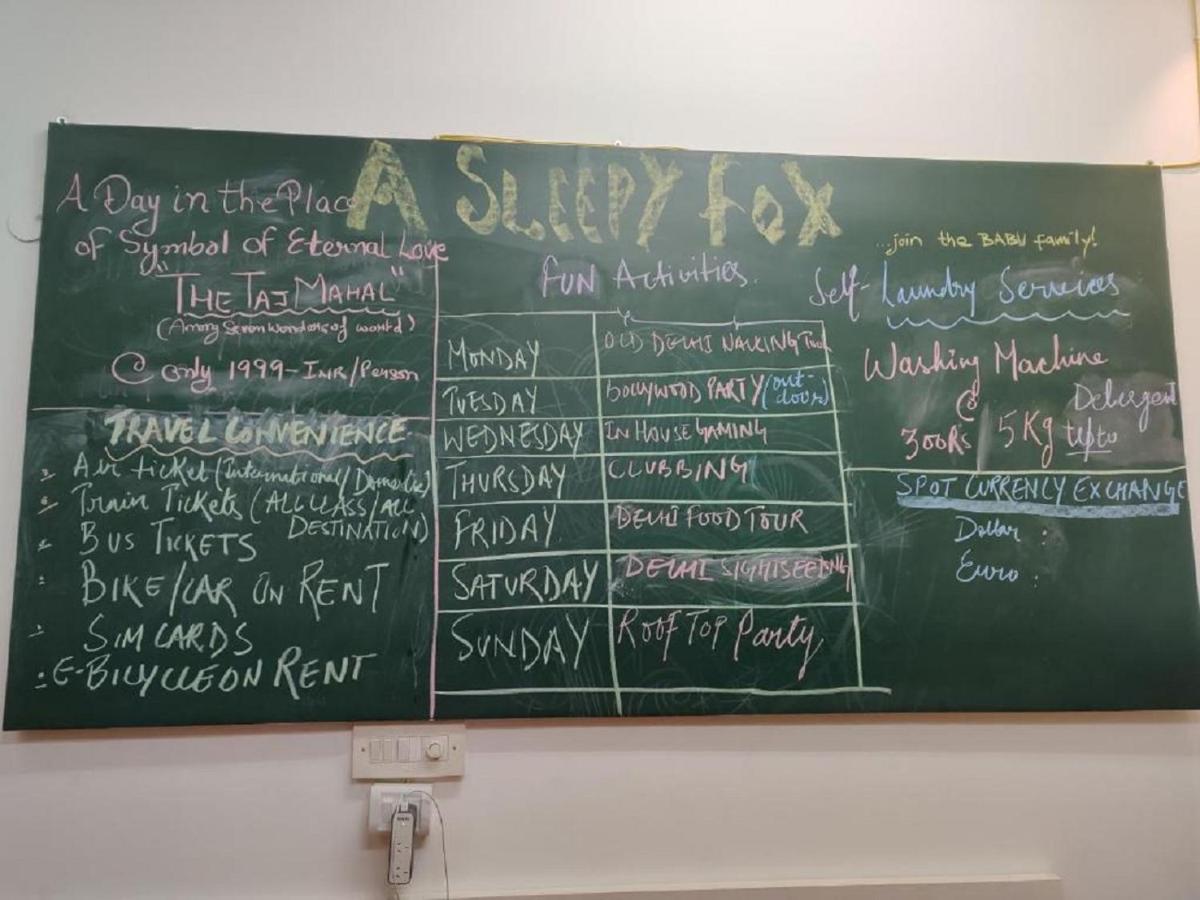 A SLEEPY FOX
A Day in the Place
of Symbol of Eternal Love
"THE TAJ MAHAL"
(Among Seven Wonders of world)
@ only 1999-INR/Person
TRAVEL CONVENIENCE
Air ticket (International/Domestic)
Train Tickets (ALL CLASS/ALL
DESTINATION)
BUS TICKETS
BIKE/CAR ON RENT
SIM CARDS
E-BICYCLE ON RENT
FUN Activities.
MONDAY OLD DELHI WALKING Tour
TUESDAY BOLLYWOOD PARTY (out-
door)
WEDNESDAY IN HOUSE GAMING
THURSDAY CLUBBING
FRIDAY DELHI FOOD TOUR
SATURDAY DELHI SIGHTSEEING
SUNDAY ROOF TOP Party
...join the BABU family!
Self-Laundry Services
Washing Machine
@ Detergent
300Rs 5Kg upto
SPOT CURRENCY EXCHANGE
Dollar :
Euro :